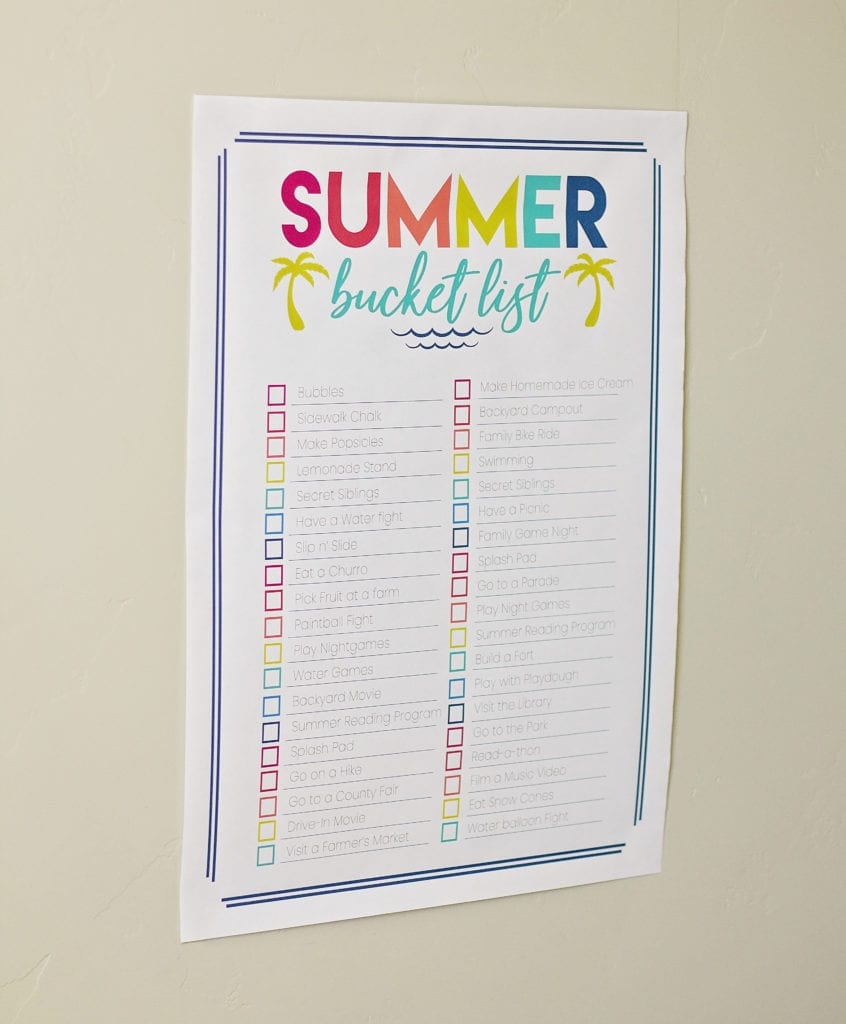 SUMMER
bucket list
Bubbles
Sidewalk Chalk
Make Popsicles
Lemonade Stand
Secret Siblings
Have a Water fight
Slip n' Slide
Eat a Churro
Pick Fruit at a farm
Paintball Fight
Play Nightgames
Water Games
Backyard Movie
Summer Reading Program
Splash Pad
Go on a Hike
Go to a County Fair
Drive-In Movie
Visit a Farmer's Market
Make Homemade Ice Cream
Backyard Campout
Family Bike Ride
Swimming
Secret Siblings
Have a Picnic
Family Game Night
Splash Pad
Go to a Parade
Play Night Games
Summer Reading Program
Build a Fort
Play with Playdough
Visit the Library
Go to the Park
Read-a-thon
Film a Music Video
Eat Snow Cones
Water balloon Fight